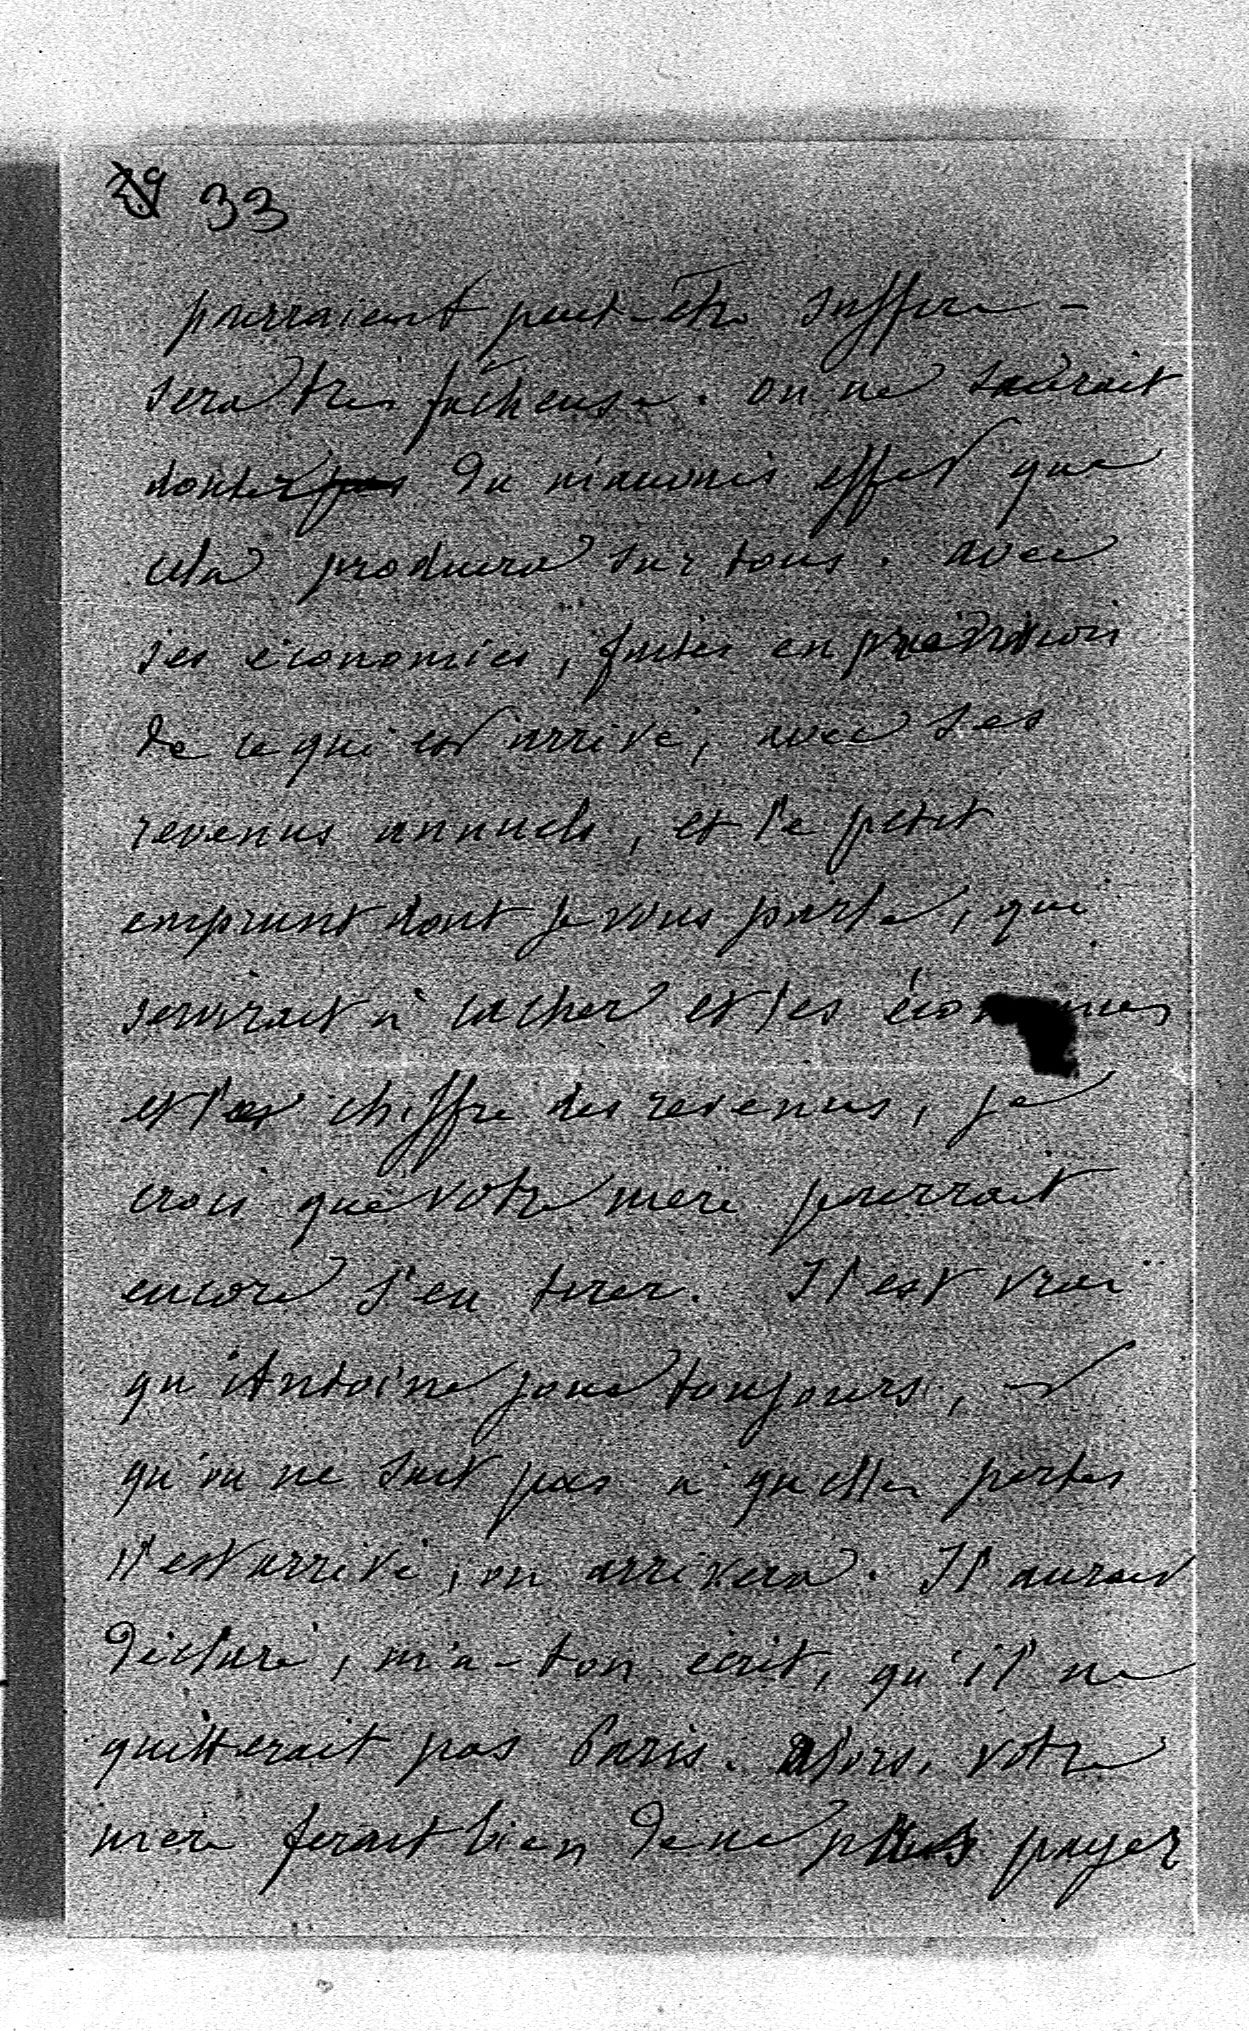 29 33
pourraient peut-être suffire -
sera très fâcheuse. on ne saurait
douter pas du mauvais effet que
cela produira sur tous. avec
ses économies, faites en prévision
de ce qui est arrivé, avec ses
revenus annuels, et le petit
emprunt dont je vous parle, qui
servirait à cacher et les économies
et les chiffre des revenus, je
crois que votre mère pourrait
encore s'en tirer. Il est vrai
qu'Antoine joue toujours, et
qu'on ne sait pas à quelles pertes
il est arrivé, ou arrivera. Il aurait
déclaré, m'a-t-on écrit, qu'il ne
quitterait pas Paris. Alors, votre
mère ferait bien de ne plus payer